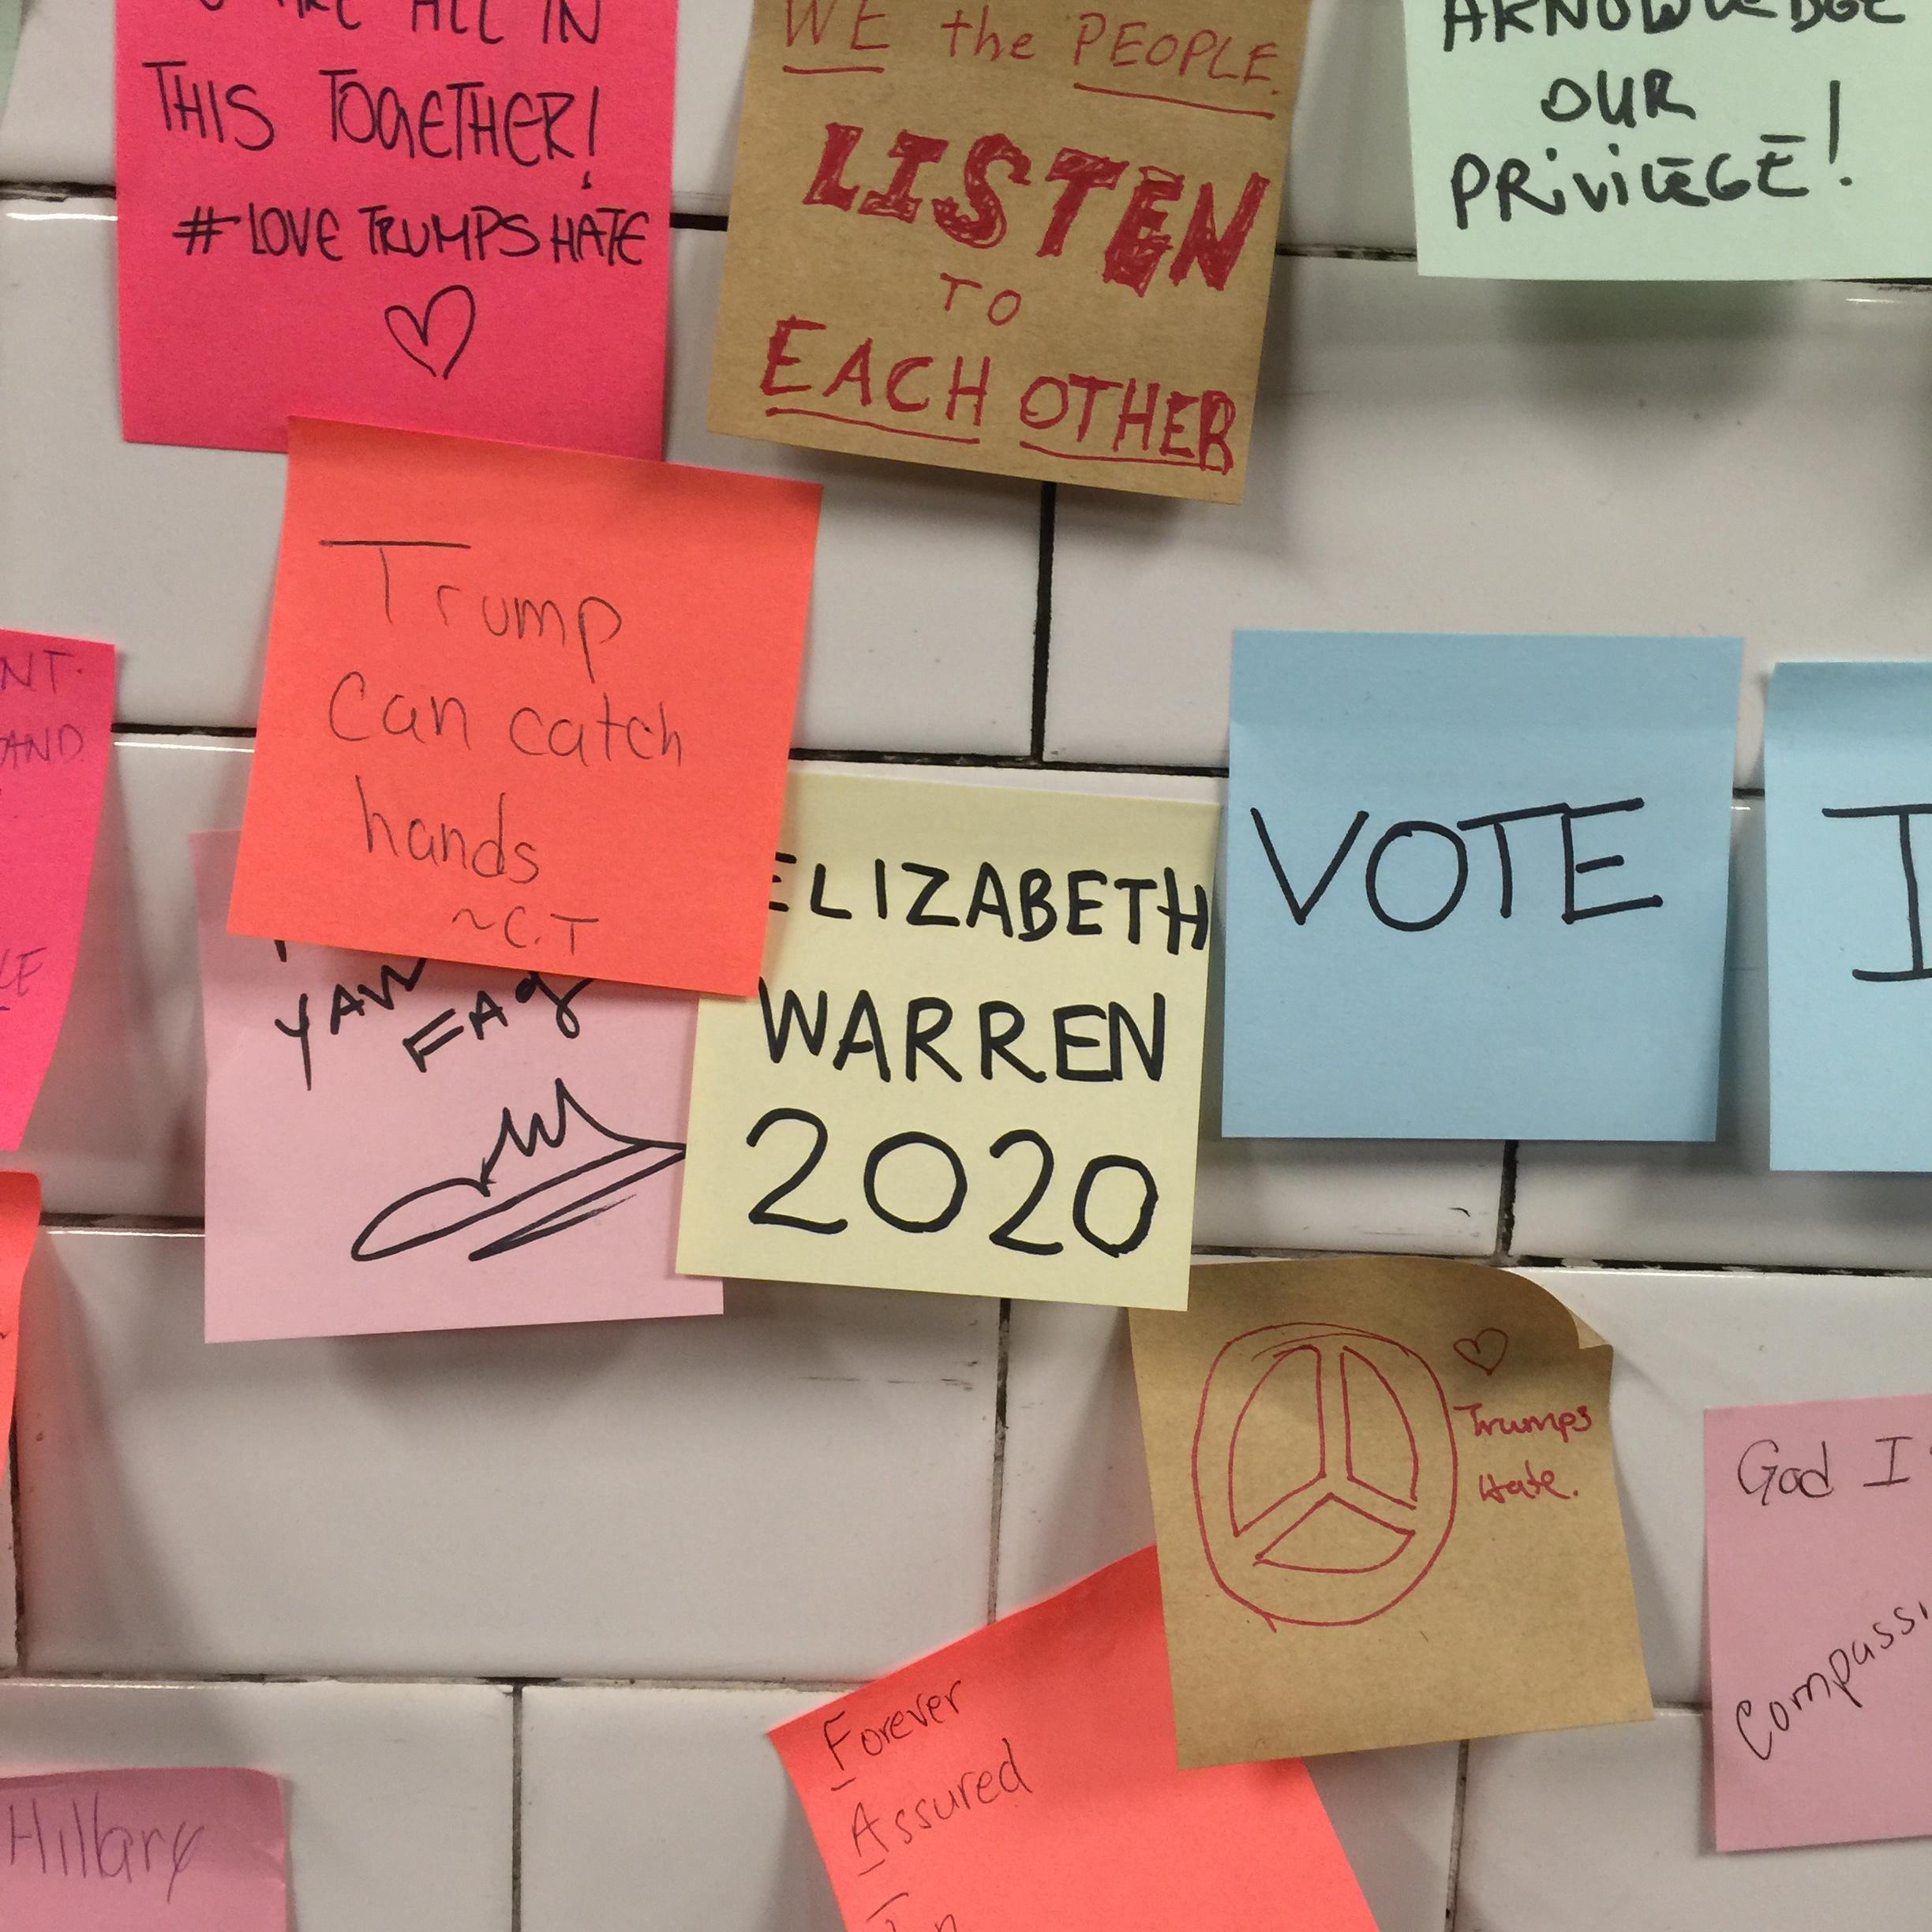 ARE ALL IN
THIS TOGETHER!
#LOVE TRUMPS HATE
WE the PEOPLE.
LISTEN
TO
EACH OTHER
AKNOWLEDGE
OUR
PRiViLEGE!
Trump
Can catch
hands
~C.T
NT.
AND
LE
YAW
FAg
ELIZABETH
WARREN
2020
VOTE
I
Trumps
Hate.
God I
Compassi
Forever
Assured
Hillary